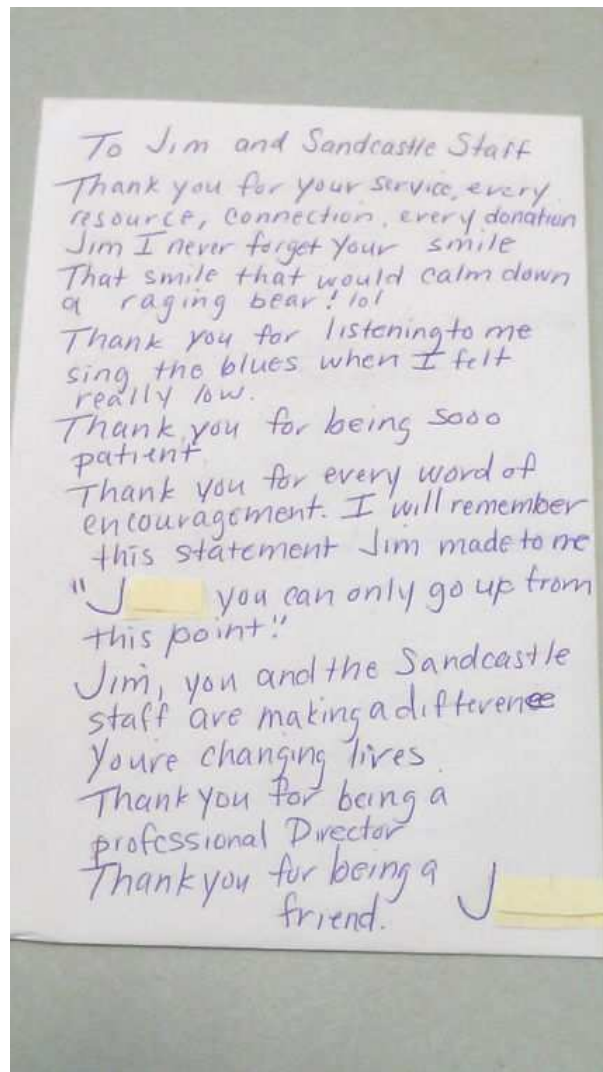 To Jim and Sandcastle Staff
Thank you for your service, every
resource, connection, every donation
Jim I never forget your smile
That smile that would calm down
a raging bear! lol
Thank you for listening to me
sing the blues when I felt
really low.
Thank you for being sooo
patient
Thank you for every word of
encouragement. I will remember
this statement Jim made to me
"J you can only go up from
this point."
Jim, you and the Sandcastle
staff are making a difference
Youre changing lives.
Thank you for being a
professional Director
Thank you for being a
friend. J